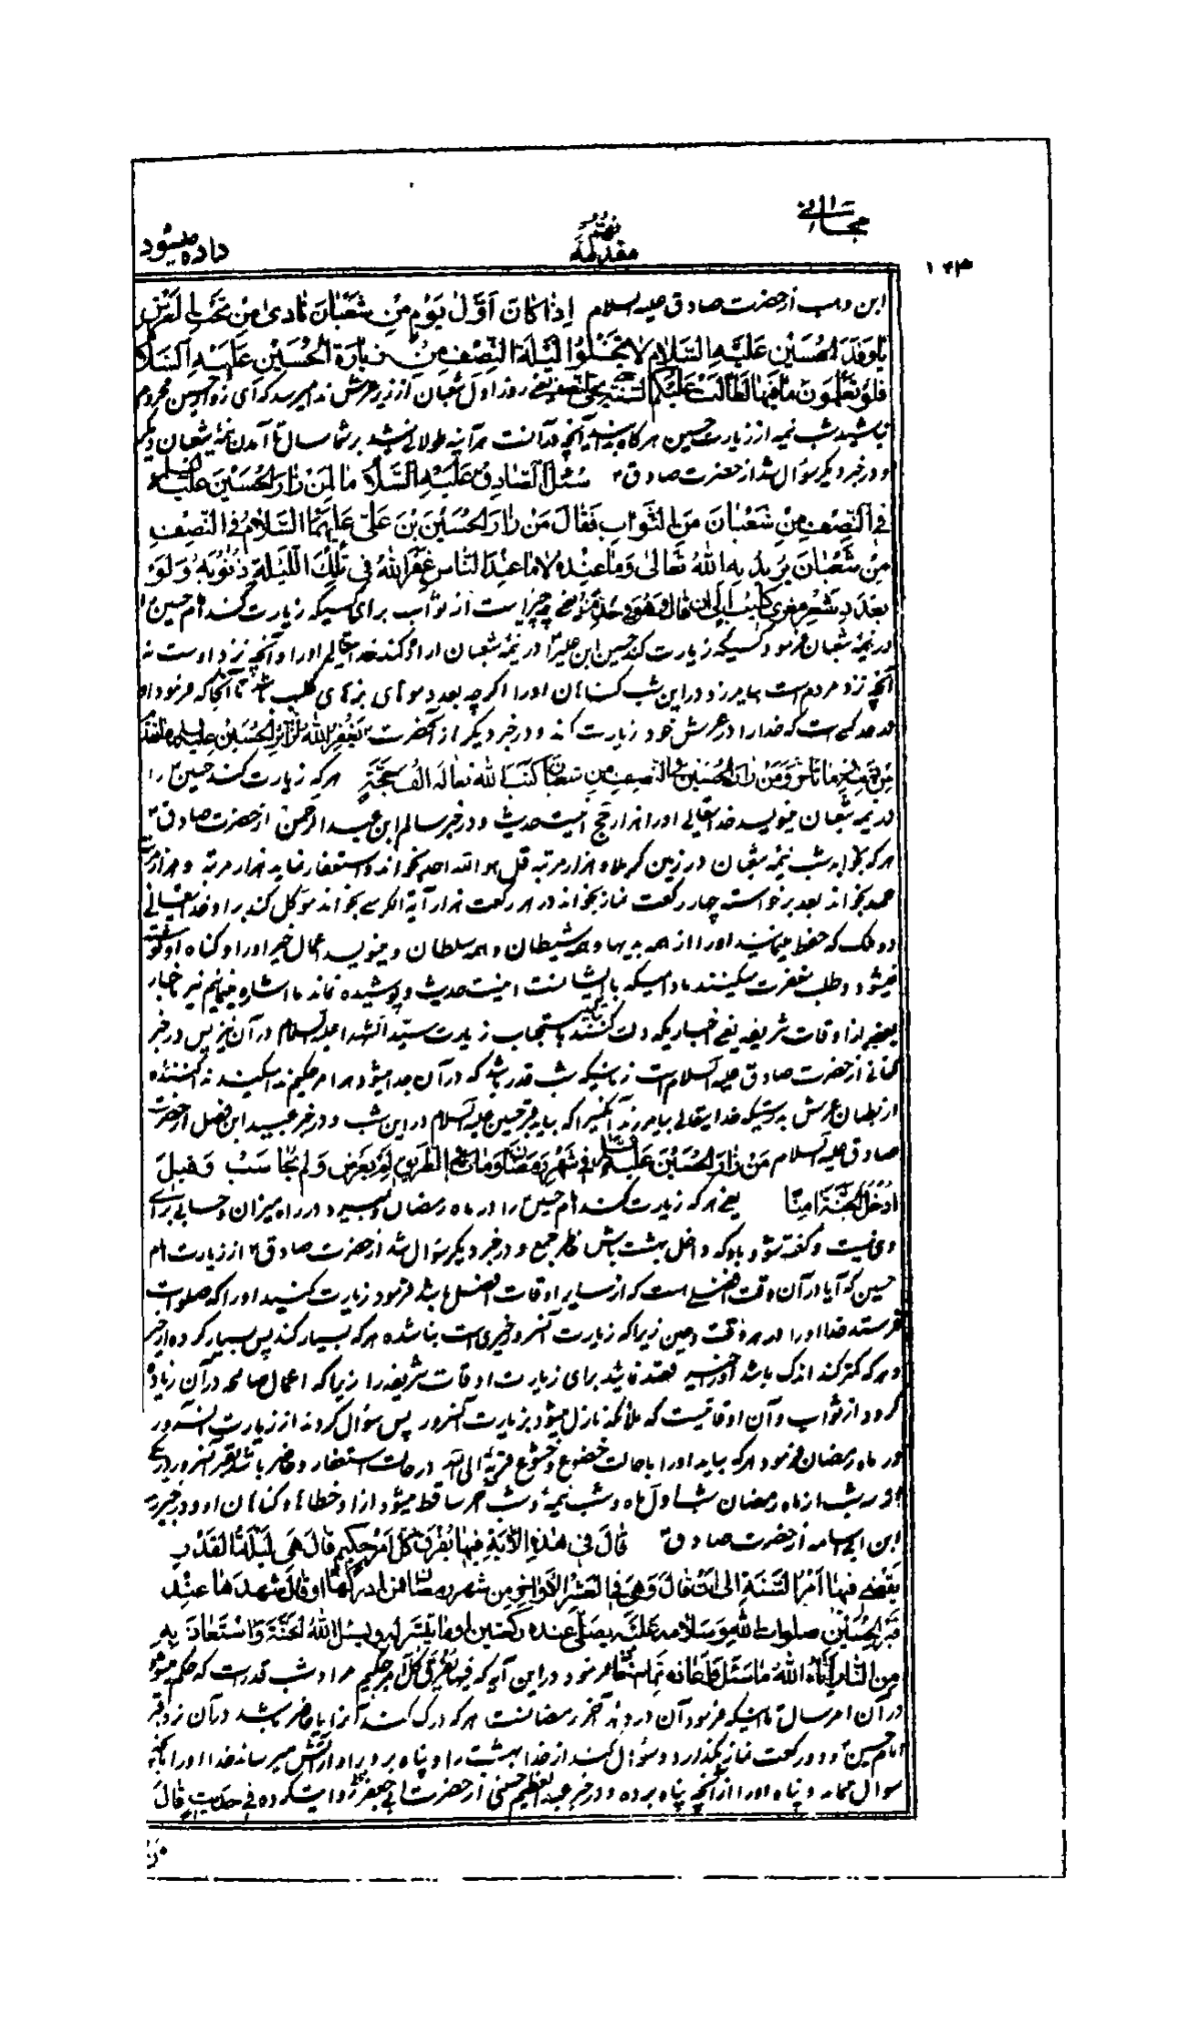 مجالس
مقدمه
داده میشود
۱۴۳
ابن وهب از حضرت صادق علیه السلام اِذا كانَ اَوَّلُ يَوْمٍ مِنْ شَعْبانَ نادى مِنْ تَحْتِ الْعَرْشِ
يا وَفْدَ الْحُسَيْنِ عَلَيْهِ السَّلامُ لا تَخْلُوا لَيْلَةَ النِّصْفِ مِنْ زِيارَةِ الْحُسَيْنِ عَلَيْهِ السَّلامُ
فَلَوْ تَعْلَمُونَ ما فيها لَطالَتْ عَلَيْكُمُ السَّنَةُ حتى النصف یعنی روز اول شعبان از زیر عرش ندا میرسد که ای زوار حسین محروم
نباشید شب نیمه از زیارت حسین هرگاه بدانید آنچه در آنست هرآینه طولانی باشد بر شما سال تا آمدن نیمه شعبان دیگر
و در خبر دیگر سؤال شد از حضرت صادق ع سُئِلَ الصّادِقُ عَلَيْهِ السَّلامُ ما لِمَنْ زارَ الْحُسَيْنَ عَلَيْهِ السلام
فِي النِّصْفِ مِنْ شَعْبانَ مِنَ الثَّوابِ فَقالَ مَنْ زارَ الْحُسَيْنَ بْنَ عَلِيٍّ عَلَيْهِمَا السَّلامُ فِي النِّصْفِ
مِنْ شَعْبانَ يُريدُ بِهِ اللهَ تَعالى وَما عِنْدَهُ لا ما عِنْدَ النّاسِ غَفَرَ اللهُ في تِلْكَ اللَّيْلَةِ ذُنُوبَهُ وَلَوْ
بِعَدَدِ شَعْرِ مِعْزى كَلْبٍ الى ان قال یعنی چه چیز است از ثواب برای کسیکه زیارت کند امام حسین را
در نیمه شعبان فرمود کسیکه زیارت کند حسین ابن علی را در نیمه شعبان اراده کند خدایتعالی اورا و آنچه نزد اوست نه
آنچه نزد مردم است بیامرزد در این شب گناهان اورا اگرچه بعدد موهای بزهای کلب باشد تا آنجا که فرمود او
مانند کسی است که خدا را در عرش خود زیارت کند و در خبر دیگر از آنحضرت يَغْفِرُ اللهُ لِزائِرِ الْحُسَيْنِ عليه السلام ما تقدم
مِنْ ذَنْبِهِ وَما تَأَخَّرَ وَمَنْ زارَ الْحُسَيْنَ فِي النِّصْفِ مِنْ شَعْبانَ كَتَبَ اللهُ تعالى لَهُ اَلْفَ حَجَّةٍ هرکه زیارت کند حسین را
در نیمه شعبان مینویسد خدایتعالی اورا هزار حج انیست حدیث و در خبر سالم ابن عبد الرحمن از حضرت صادق ع
هرکه بخوابد شب نیمه شعبان در زمین کربلا و هزار مرتبه قل هو الله احد بخواند و استغفار نماید هزار مرتبه و هزار مرتبه
حمد بخواند بعد برخواسته چهار رکعت نماز بخواند در هر رکعت هزار آیة الکرسی بخواند موکل کند بر او خدایتعالی
دو ملک که حفظ مینمایند اورا از همه بدیها و همه شیطان و همه سلطان و مینویسد اعمال خیر اورا و گناه او نوشته
نمیشود و طلب مغفرت میکنند مادامیکه با ایشانست انیست حدیث و پوشیده نماند ما اشاره مینمائیم نیز باخبار
بعضی از اوقات شریفه یعنی اخباریکه دلالت کنند باستحباب زیارت سید الشهداء علیه السلام در آن نیز پس در خبر
کنانی از حضرت صادق علیه السلام است زمانیکه شب قدر باشد که در آن جدا میشود هر امر حکیم ندا میکند ندا کننده
از بطنان عرش بدرستیکه خدایتعالی بیامرزد آنکسیرا که بیاید بقبر حسین علیه السلام در این شب و در خبر عبید ابن فضل از حضرت
صادق علیه السلام مَنْ زارَ الْحُسَيْنَ عَلَيْهِ السلام في شَهْرِ رَمَضانَ وَماتَ فِي الطَّريقِ لَمْ يُعْرَضْ وَلَمْ يُحاسَبْ وَقيلَ
اُدْخُلِ الْجَنَّةَ آمِنًا یعنی هرکه زیارت کند امام حسین را در ماه رمضان و بمیرد در راه میزان و حسابی برای
وی نیست و گفته شود باو که داخل بهشت باش خاطر جمع و در خبر دیگر سؤال شد از حضرت صادق ع از زیارت امام
حسین که آیا در آن وقت افضلی است که از سایر اوقات افضل باشد فرمود زیارت کنید اورا که صلوات
فرستد خدا اورا در هر وقت و حین زیرا که زیارت آنسرور خیری است بنا شده هرکه بسیار کند پس بسیار کرده از خیر
و هرکه کمتر کند اندک باشد قصد نمائید برای زیارت اوقات شریفه را زیرا که اعمال صالحه در آن زیاد
گردد از ثواب و آن اوقاتیست که ملائکه نازل میشود بزیارت آنسرور پس سؤال کردند از زیارت آنسرور
در ماه رمضان فرمود هرکه بیاید اورا با حالت خضوع و خشوع قربة الی الله در حالت استغفار و حاضر باشد بقبر آنسرور در یکی
از سه شب از ماه رمضان شب اول ماه و شب نیمه و شب آخر ساقط میشود از او خطاها و گناهان او و در خبر
ابن ابی اسامه از حضرت صادق ع قالَ في هذِهِ الْآيَةِ فيها يُفْرَقُ كُلُّ اَمْرٍ حَكيمٍ قالَ هِيَ لَيْلَةُ الْقَدْرِ
يُقْضى فيها اَمْرُ السَّنَةِ الى ان قالَ وَهِيَ فِي الْعَشْرِ الْاَواخِرِ مِنْ شهر رمضان فمن ادركها او قال شهدها عِنْدَ
قَبْرِ الْحُسَيْنِ صلوات الله وسلامه عليه يصلي عنده ركعتين او ما تيسر له ويسئل الله الْجَنَّةَ وَاسْتَعاذَ بِهِ
مِنَ النّارِ آتاهُ اللهُ ما سَئَلَ وَاعاذَهُ مِمَّا اسْتَعاذَ فرمود در این آیه که فيها يُفْرَقُ كُلُّ اَمْرٍ حَكيمٍ مراد شب قدرست که حکم میشود
در آن امر سال تا اینکه فرمود آن در دهه آخر رمضانست هرکه درک کند آنرا یا حاضر باشد در آن نزد قبر
امام حسین ع و دو رکعت نماز بگذارد و سؤال کند از خدا بهشت را و پناه برد باو از آتش میرساند خدا اورا آنچه
سوال نماید و پناه دهد اورا از آنچه پناه برده و در خبر عبد العظیم حسنی از حضرت ابی جعفر روایت کرده في حَديثٍ قالَ